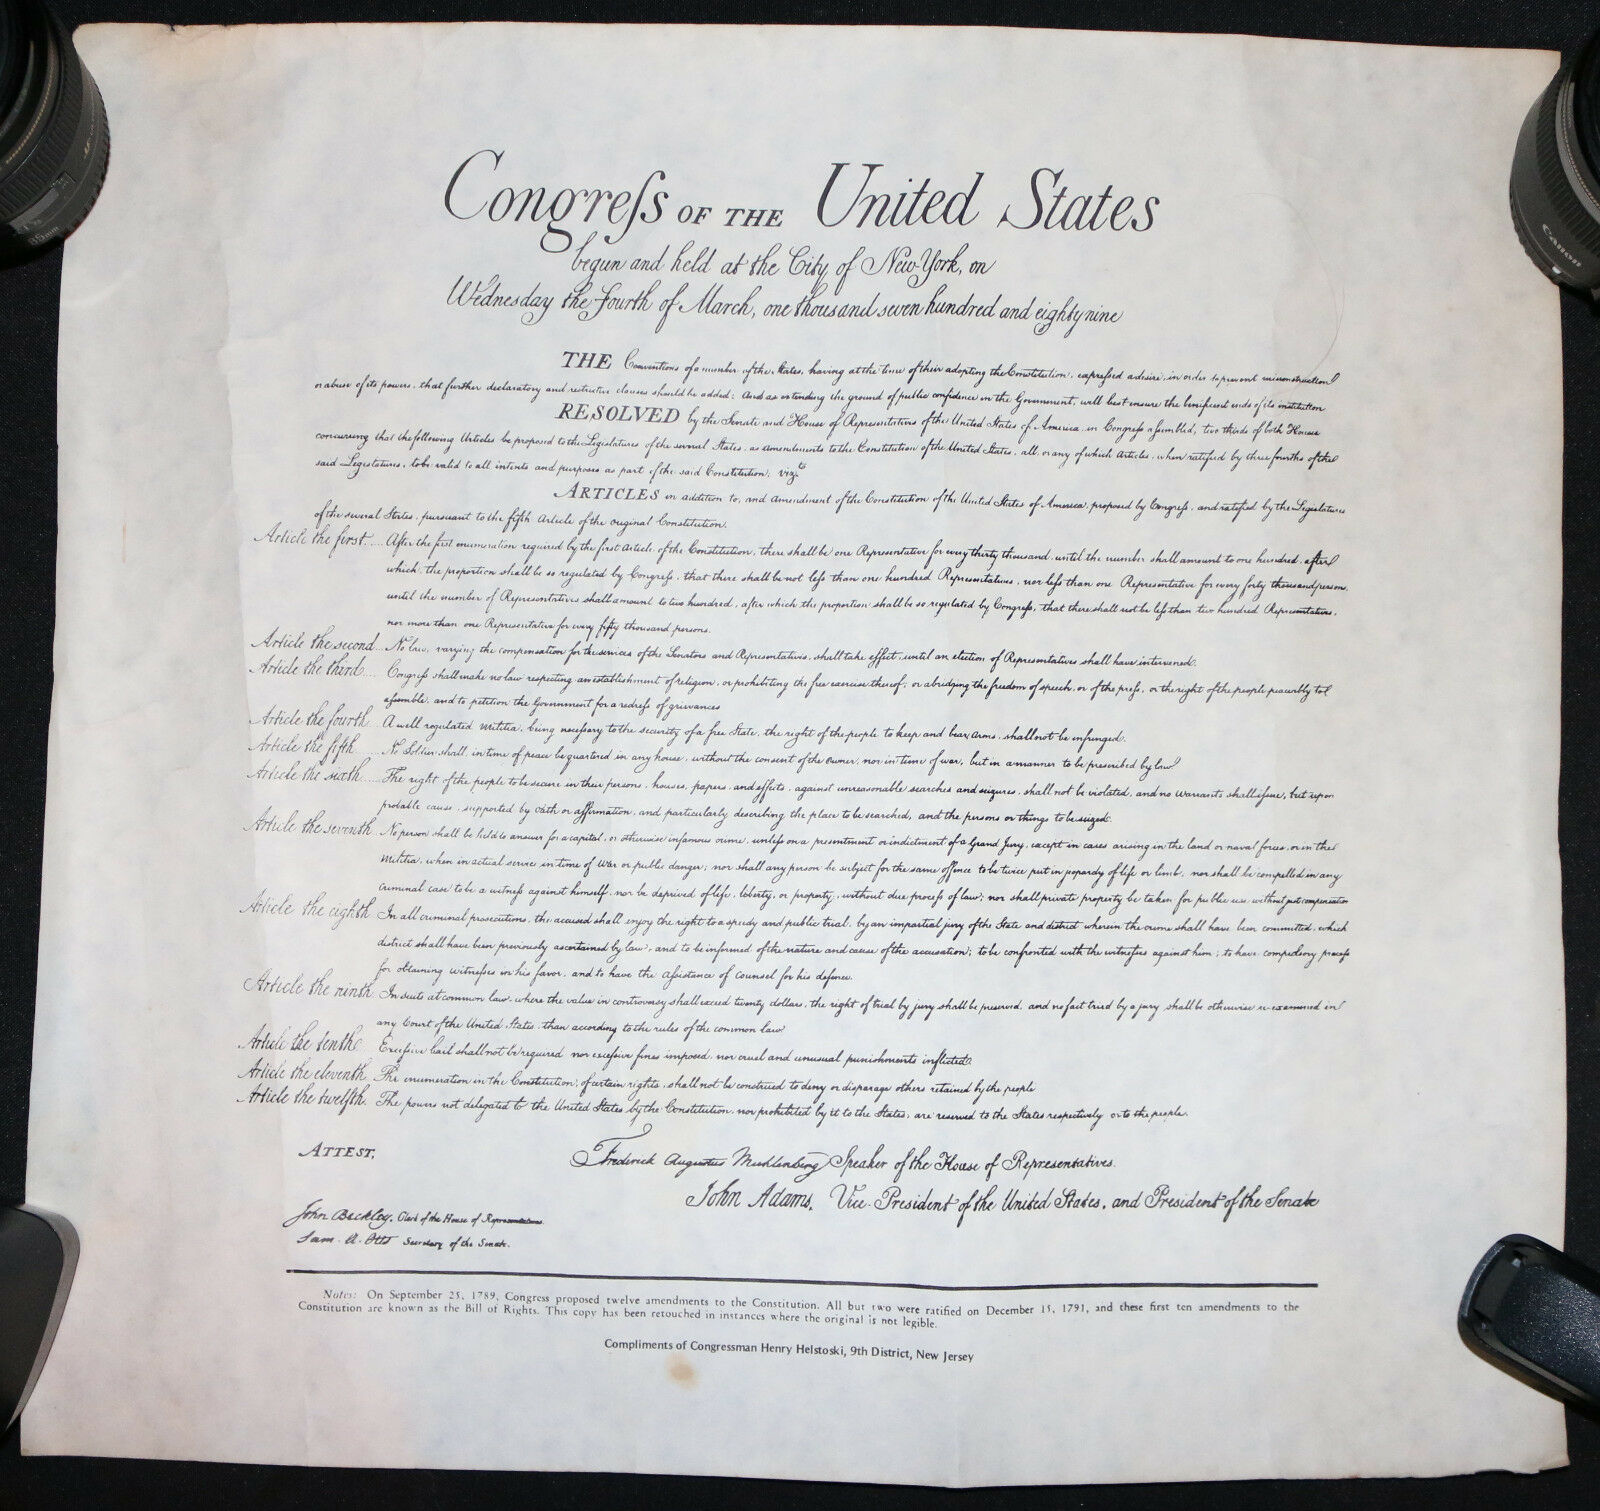 Congreſs OF THE United States
begun and held at the City of New-York, on
Wednesday the Fourth of March, one thousand seven hundred and eighty nine
THE Conventions of a number of the States, having at the time of their adopting the Constitution, expreſsed a desire, in order to prevent misconstruction
or abuse of its powers, that further declaratory and restrictive clauses should be added: And as extending the ground of public confidence in the Government, will best ensure the beneficent ends of its institution
RESOLVED by the Senate and House of Representatives of the United States of America, in Congreſs aſsembled, two thirds of both Houses
concurring that the following Articles be proposed to the Legislatures of the several States, as amendments to the Constitution of the United States, all, or any of which Articles, when ratified by three fourths of the
said Legislatures, to be valid to all intents and purposes as part of the said Constitution; vizt
ARTICLES in addition to, and Amendment of the Constitution of the United States of America, proposed by Congreſs, and ratified by the Legislatures
of the several States, pursuant to the fifth Article of the original Constitution.
Article the first..... After the first enumeration required by the first Article of the Constitution, there shall be one Representative for every thirty thousand, until the number shall amount to one hundred, after
which, the proportion shall be so regulated by Congreſs, that there shall be not leſs than one hundred Representatives, nor leſs than one Representative for every forty thousand persons,
until the number of Representatives shall amount to two hundred, after which the proportion shall be so regulated by Congreſs, that there shall not be leſs than two hundred Representatives,
nor more than one Representative for every fifty thousand persons.
Article the second... No law, varying the compensation for the services of the Senators and Representatives, shall take effect, until an election of Representatives shall have intervened.
Article the third..... Congreſs shall make no law respecting an establishment of religion, or prohibiting the free exercise thereof; or abridging the freedom of speech, or of the preſs, or the right of the people peaceably to
aſsemble, and to petition the Government for a redreſs of grievances
Article the fourth... A well regulated Militia, being neceſsary to the security of a free State, the right of the people to keep and bear Arms, shall not be infringed.
Article the fifth ..... No Soldier shall, in time of peace be quartered in any house, without the consent of the owner, nor in time of war, but in a manner to be prescribed by law
Article the sixth..... The right of the people to be secure in their persons, houses, papers, and effects, against unreasonable searches and seizures, shall not be violated, and no Warrants shall iſsue, but upon
probable cause, supported by Oath or affirmation, and particularly describing the place to be searched, and the persons or things to be seized.
Article the seventh. No person shall be held to answer for a capital, or otherwise infamous crime, unleſs on a presentment or indictment of a Grand Jury, except in cases arising in the land or naval forces, or in the
Militia, when in actual service in time of War or public danger; nor shall any person be subject for the same offence to be twice put in jeopardy of life or limb, nor shall be compelled in any
criminal case to be a witneſs against himself, nor be deprived of life, liberty, or property, without due proceſs of law; nor shall private property be taken for public use, without just compensation
Article the eighth In all criminal prosecutions, the accused shall enjoy the right to a speedy and public trial, by an impartial jury of the State and district wherein the crime shall have been committed, which
district shall have been previously ascertained by law, and to be informed of the nature and cause of the accusation; to be confronted with the witneſses against him; to have compulsory proceſs
for obtaining witneſses in his favor, and to have the Aſsistance of Counsel for his defence.
Article the ninth In suits at common law, where the value in controversy shall exceed twenty dollars, the right of trial by jury shall be preserved, and no fact tried by a jury, shall be otherwise re-examined in
any Court of the United States, than according to the rules of the common law
Article the tenth. Exceſsive bail shall not be required nor exceſsive fines imposed, nor cruel and unusual punishments inflicted.
Article the eleventh. The enumeration in the Constitution, of certain rights, shall not be construed to deny or disparage others retained by the people
Article the twelfth. The powers not delegated to the United States by the Constitution, nor prohibited by it to the States, are reserved to the States respectively or to the people.
ATTEST,
Frederick Augustus Muhlenberg Speaker of the House of Representatives.
John Adams, Vice-President of the United States, and President of the Senate
John Beckley, Clerk of the House of Representatives.
Sam. A. Otis Secretary of the Senate.
Notes: On September 25, 1789, Congress proposed twelve amendments to the Constitution. All but two were ratified on December 15, 1791, and these first ten amendments to the
Constitution are known as the Bill of Rights. This copy has been retouched in instances where the original is not legible.
Compliments of Congressman Henry Helstoski, 9th District, New Jersey
85mm
Canon